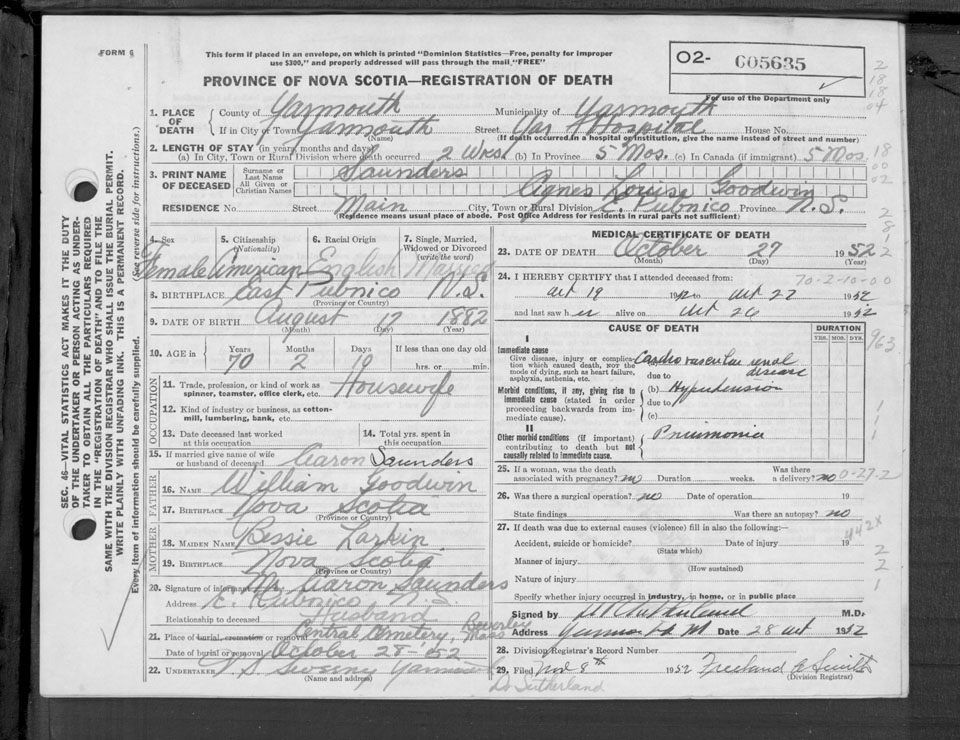 FORM 6
This form if placed in an envelope, on which is printed "Dominion Statistics—Free, penalty for improper
use $300," and properly addressed will pass through the mail "FREE"
PROVINCE OF NOVA SCOTIA—REGISTRATION OF DEATH
02- 005635
For use of the Department only
SEC. 46—VITAL STATISTICS ACT MAKES IT THE DUTY
OF THE UNDERTAKER OR PERSON ACTING AS UNDER-
TAKER TO OBTAIN ALL THE PARTICULARS REQUIRED
IN THE "REGISTRATION OF DEATH" AND TO FILE THE
SAME WITH THE DIVISION REGISTRAR WHO SHALL ISSUE THE BURIAL PERMIT.
WRITE PLAINLY WITH UNFADING INK. THIS IS A PERMANENT RECORD.
Every item of information should be carefully supplied. (See reverse side for instructions.)
1. PLACE OF DEATH
County of Yarmouth Municipality of Yarmouth
If in City or Town Yarmouth Street Yar Hospital House No.
(Name) (If death occurred in a hospital or institution, give the name instead of street and number)
2. LENGTH OF STAY (in years, months and days)
(a) In City, Town or Rural Division where death occurred 2 Wks. (b) In Province 5 Mos. (c) In Canada (if immigrant) 5 Mos.
3. PRINT NAME OF DECEASED
Surname or Last Name Saunders
All Given or Christian Names Agnes Louise Goodwin
RESIDENCE No. Street Main City, Town or Rural Division E. Pubnico Province N.S.
(Residence means usual place of abode. Post Office Address for residents in rural parts not sufficient)
4. Sex Female
5. Citizenship (Nationality) American
6. Racial Origin English
7. Single, Married, Widowed or Divorced (write the word) Married
8. BIRTHPLACE East Pubnico N.S.
(Province or Country)
9. DATE OF BIRTH August 17 1882
(Month) (Day) (Year)
10. AGE in Years 70 Months 2 Days 10 If less than one day old
hrs. or min.
OCCUPATION
11. Trade, profession, or kind of work as
spinner, teamster, office clerk, etc. Housewife
12. Kind of industry or business, as cotton-
mill, lumbering, bank, etc.
13. Date deceased last worked
at this occupation
14. Total yrs. spent in
this occupation
15. If married give name of wife
or husband of deceased Aaron Saunders
FATHER
16. NAME William Goodwin
17. BIRTHPLACE Nova Scotia
(Province or Country)
MOTHER
18. MAIDEN NAME Bessie Larkin
19. BIRTHPLACE Nova Scotia
(Province or Country)
20. Signature of informant Mr Aaron Saunders
Address E. Pubnico NS
Relationship to deceased Husband
21. Place of burial, cremation or removal Central Cemetery, Beverley Mass
Date of burial or removal October 28 1952
22. UNDERTAKER Sweeny Yarmouth
(Name and address)
MEDICAL CERTIFICATE OF DEATH
23. DATE OF DEATH October 27 1952
(Month) (Day) (Year)
24. I HEREBY CERTIFY that I attended deceased from:
70-2-10-00
Oct 19 1952 to Oct 27 1952
and last saw her alive on Oct 26 1952
CAUSE OF DEATH DURATION
YRS. MOS. DYS.
I
Immediate cause
Give disease, injury or complica-
tion which caused death, NOT the
mode of dying, such as heart failure,
asphyxia, asthenia, etc.
(a) Cardio vascular renal disease
due to
Morbid conditions, if any, giving rise to
immediate cause (stated in order
proceeding backwards from im-
mediate cause).
(b) Hypertension
due to
(c)
II
Other morbid conditions (if important)
contributing to death but not
causally related to immediate cause.
Pneumonia
25. If a woman, was the death
associated with pregnancy? no Duration weeks. Was there a delivery? no
26. Was there a surgical operation? no Date of operation 19
State findings Was there an autopsy? no
27. If death was due to external causes (violence) fill in also the following:—
Accident, suicide or homicide? Date of injury 19
(State which)
Manner of injury
(How sustained)
Nature of injury
Specify whether injury occurred in industry, in home, or in public place
Signed by M.D.
Address Date 28 Oct 1952
28. Division Registrar's Record Number
29. Filed Nov 8th 1952
(Division Registrar)
Dr Sutherland
963
442X